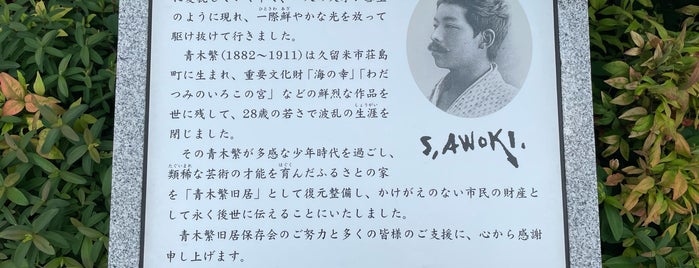 のように現れ、一際鮮やかな光を放って
駆け抜けて行きました。
青木繁(1882～1911)は久留米市荘島
町に生まれ、重要文化財「海の幸」「わだ
つみのいろこの宮」などの鮮烈な作品を
世に残して、28歳の若さで波乱の生涯を
閉じました。
その青木繁が多感な少年時代を過ごし、
類稀な芸術の才能を育んだふるさとの家
を「青木繁旧居」として復元整備し、かけがえのない市民の財産と
して永く後世に伝えることにいたしました。
青木繁旧居保存会のご努力と多くの皆様のご支援に、心から感謝
申し上げます。
S, AWOKI.